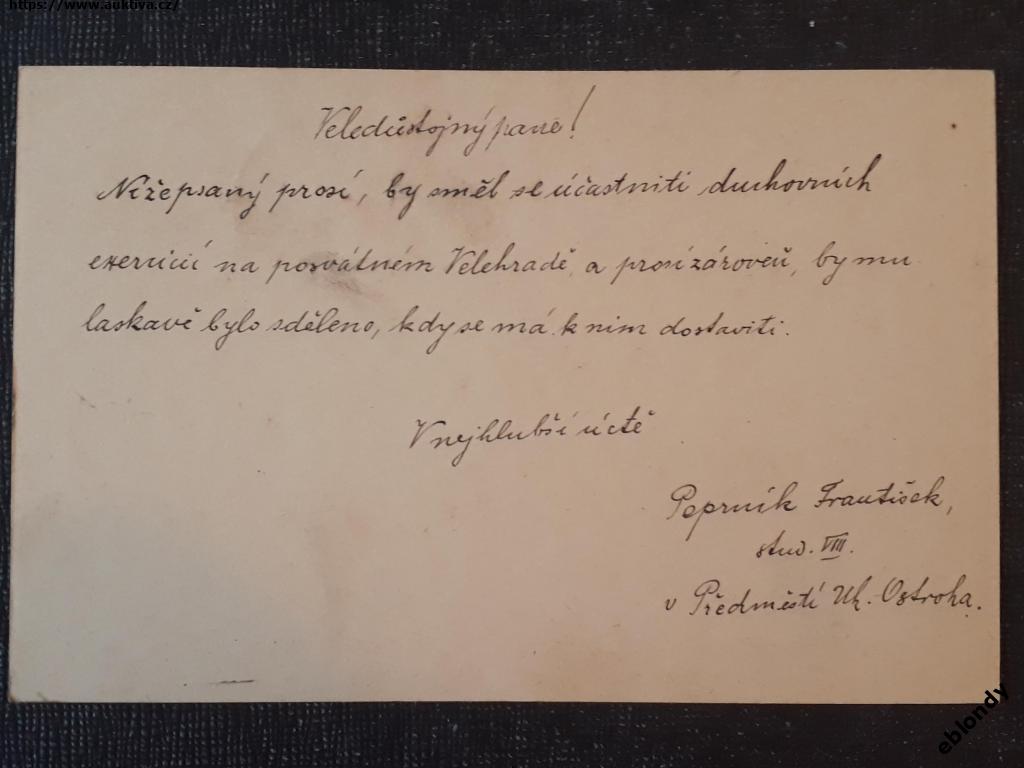 https://www.auktiva.cz/
Veledůstojný pane!
Nížepsaný prosí, by směl se účastniti duchovních
exercicií na posvátném Velehradě, a prosí zároveň, by mu
laskavě bylo sděleno, kdy se má k nim dostaviti.
V nejhlubší úctě
Peprník František,
stud. VIII.
v Předměstí Uh. Ostroha.
eblondy